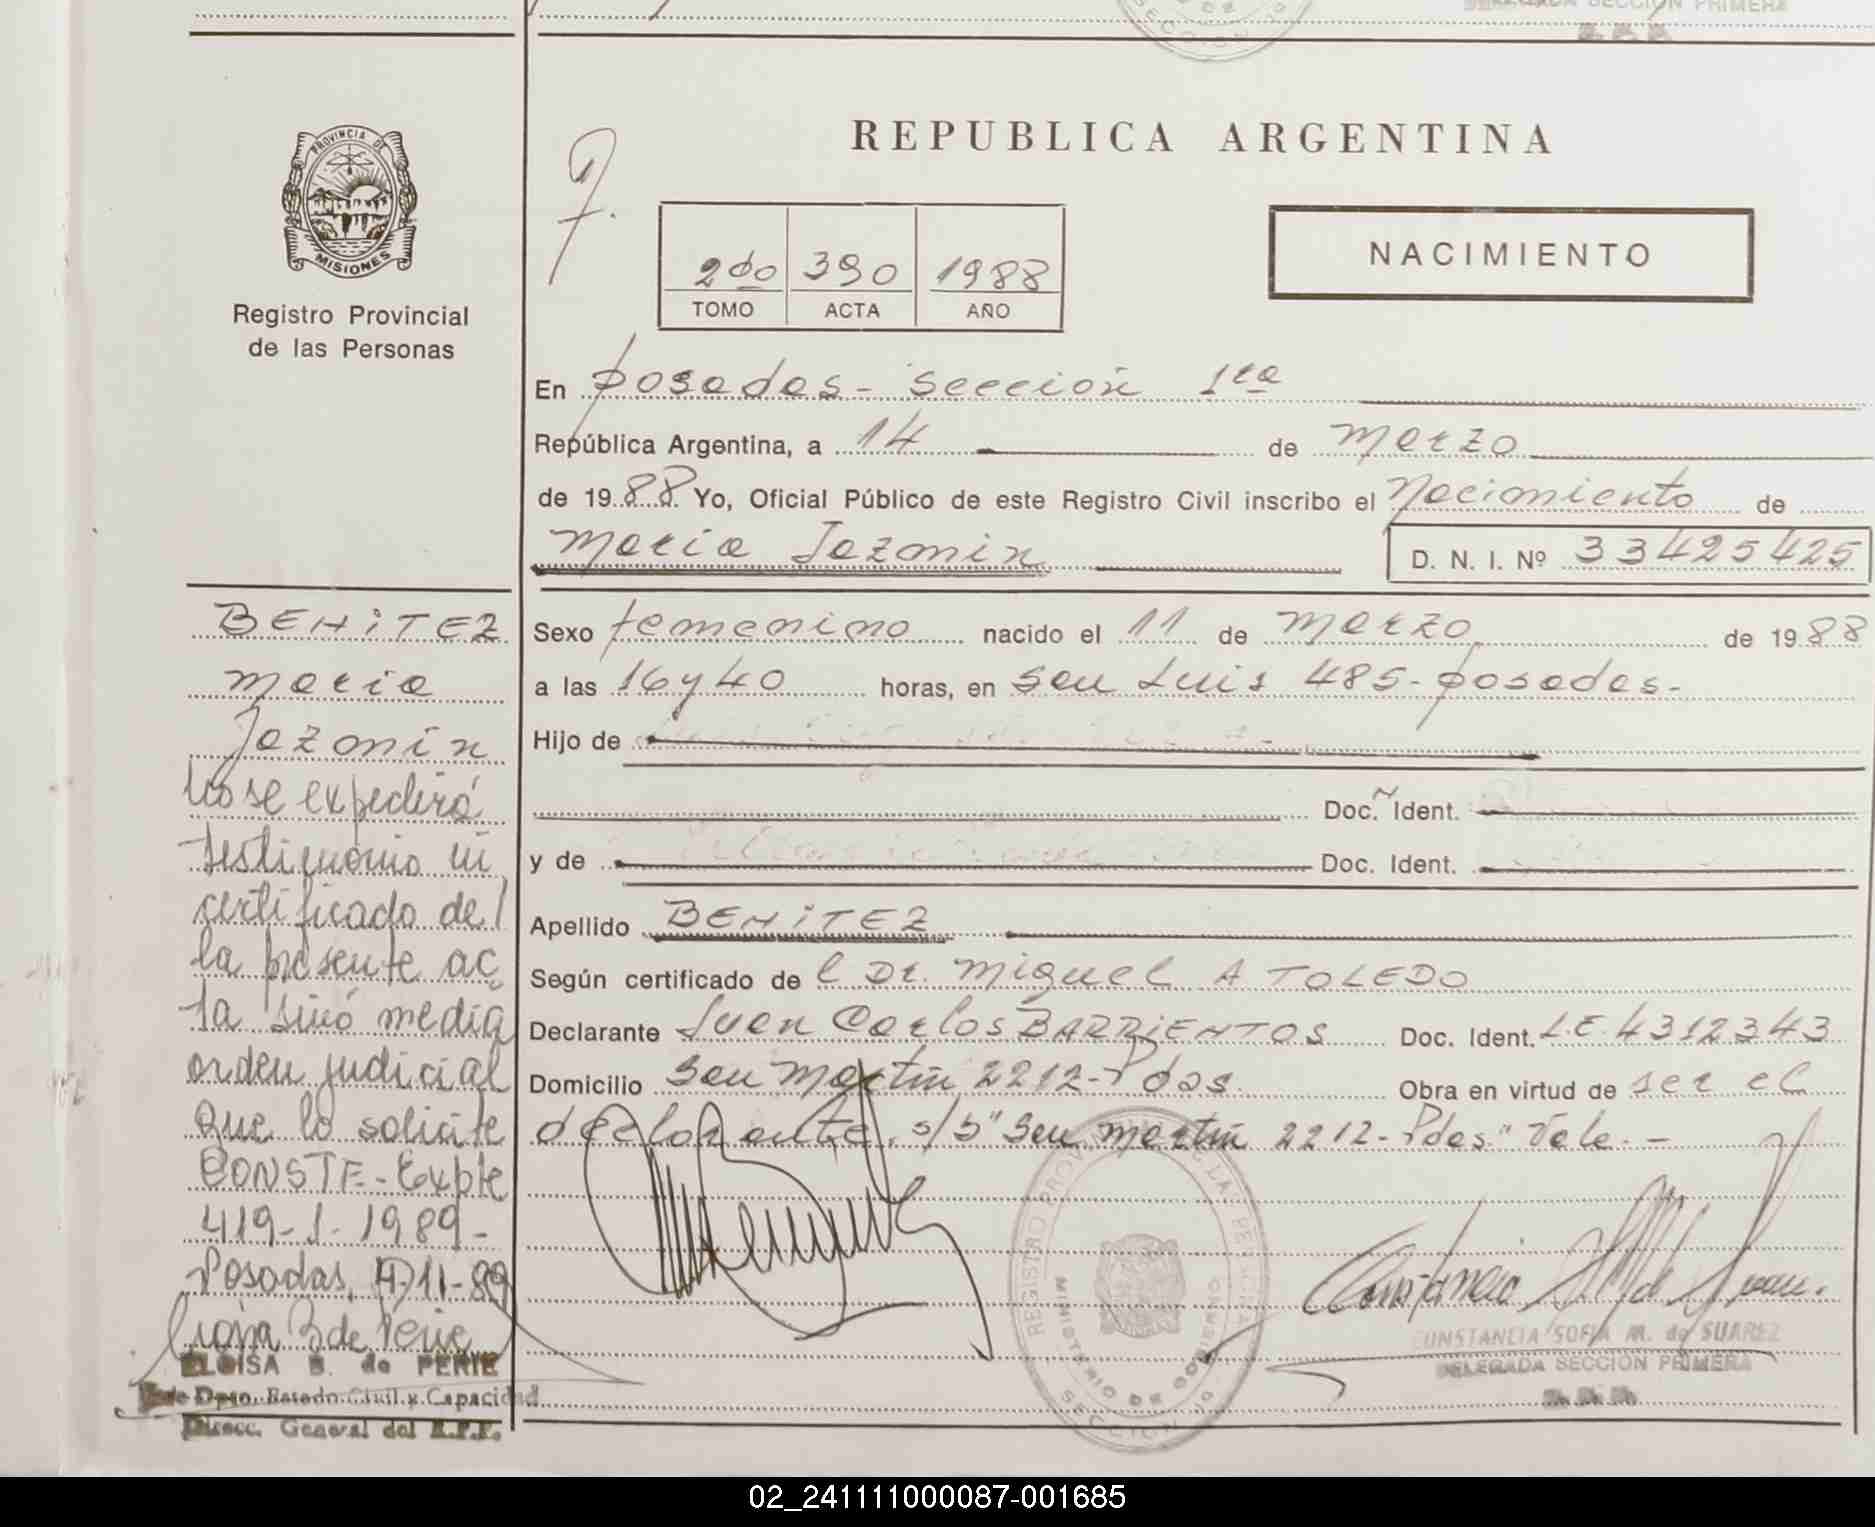 DELEGADA SECCION PRIMERA
PROVINCIA DE
MISIONES
Registro Provincial
de las Personas
REPUBLICA ARGENTINA
NACIMIENTO
2do 390 1988
TOMO ACTA AÑO
En Posadas - Sección 1ra
República Argentina, a 14 de Marzo
de 1988. Yo, Oficial Público de este Registro Civil inscribo el Nacimiento de
Maria Jazmin D. N. I. Nº 33425425
Sexo femenino nacido el 11 de Marzo de 1988
a las 16 y 40 horas, en San Luis 485 - Posadas -
Hijo de
Doc. Ident.
y de Doc. Ident.
Apellido BENITEZ
Según certificado de l Dr. Miguel A TOLEDO
Declarante Juan Carlos BARRIENTOS Doc. Ident. L.E. 4312343
Domicilio San Martin 2212 - Pdas. Obra en virtud de ser el
declarante. s/b "San Martin 2212 - Pdas" Vale. -
BENITEZ
Maria
Jazmin
No se expedirá
testimonio ni
certificado de
la presente ac
ta sinó media
orden judicial
que lo solicite
CONSTE - Expte
419-1-1989-
Posadas, 17-11-89
ELOISA B. de PERIE
Jefe Dpto. Estado Civil y Capacidad
Direcc. General del R.P.P.
REGISTRO PROVINCIAL DE LAS PERSONAS
MINISTERIO DE GOBIERNO
SECCION 1a
CONSTANCIA SOFIA M. de SUAREZ
DELEGADA SECCION PRIMERA
02_241111000087-001685